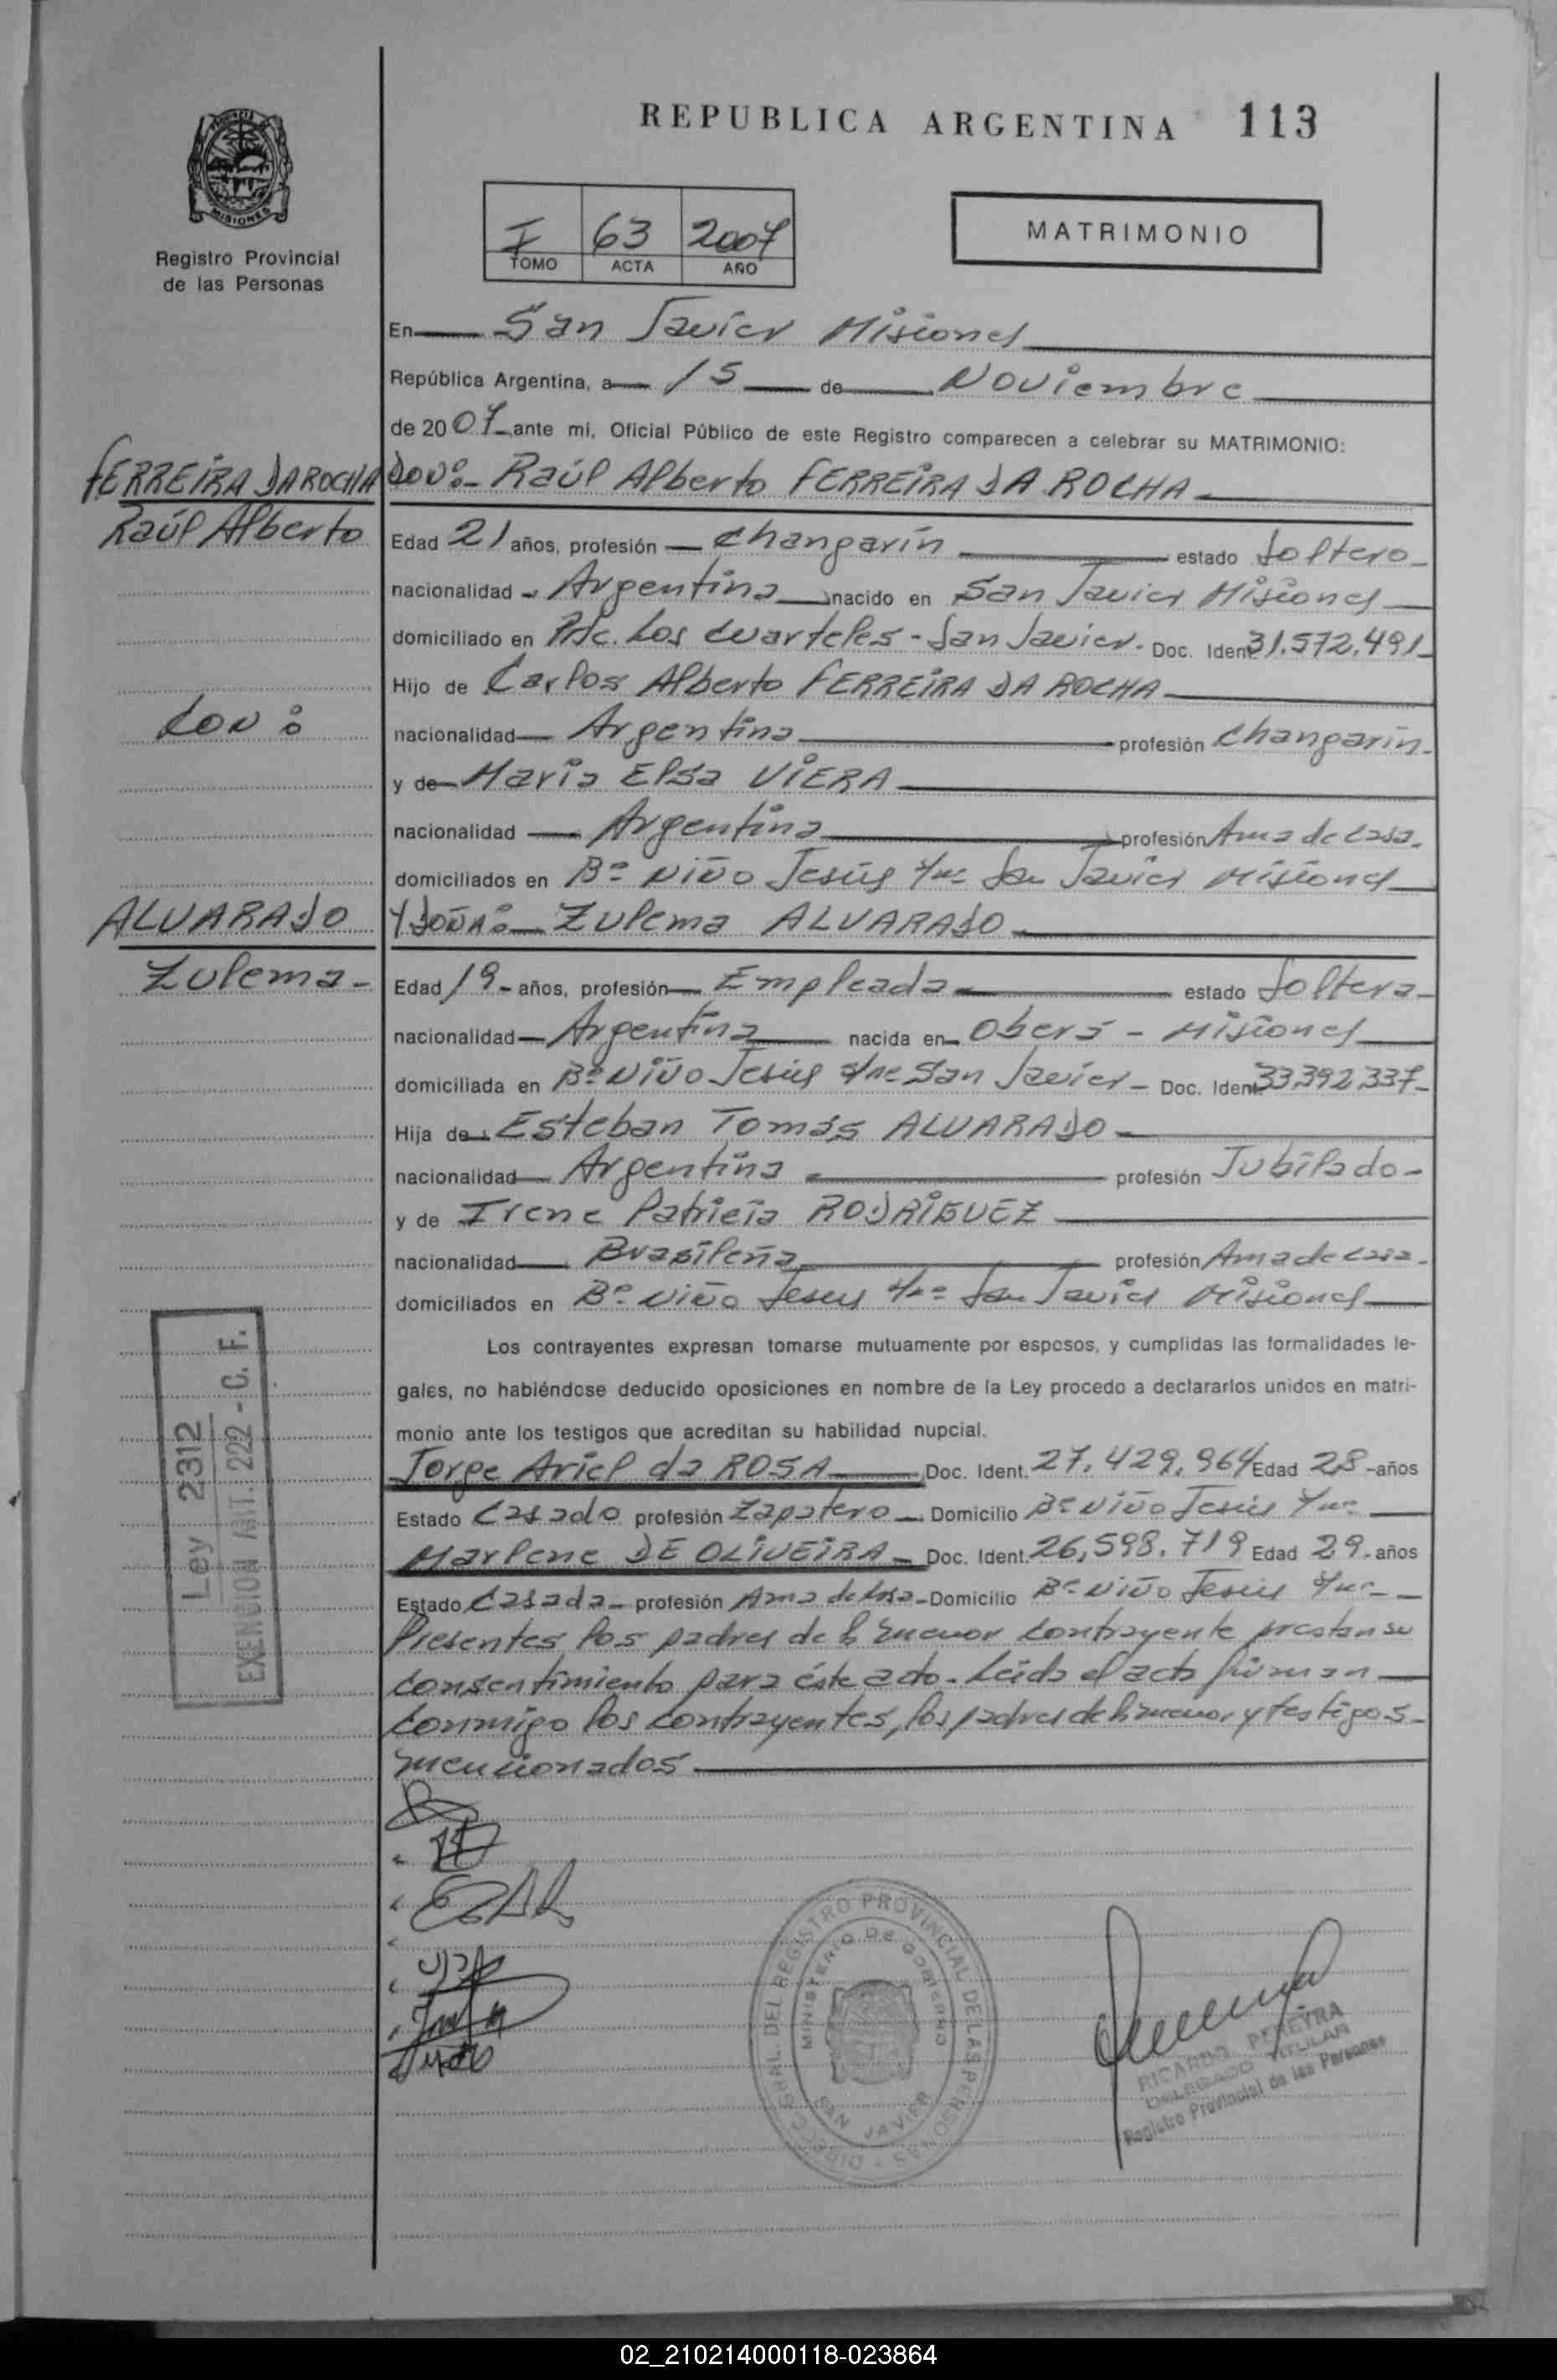 REPUBLICA ARGENTINA 113
MISIONES
Registro Provincial
de las Personas
I 63 2007
TOMO ACTA AÑO
MATRIMONIO
En San Javier Misiones
República Argentina, a 15 de Noviembre
de 2007 ante mí, Oficial Público de este Registro comparecen a celebrar su MATRIMONIO:
FERREIRA DA ROCHA
Raúl Alberto
CON:
ALVARADO
Zulema-
DON:- Raúl Alberto FERREIRA DA ROCHA
Edad 21 años, profesión Changarín estado Soltero-
nacionalidad Argentina nacido en San Javier Misiones
domiciliado en Pje. Los Cuarteles - San Javier. Doc. Ident. 31.572.491
Hijo de Carlos Alberto FERREIRA DA ROCHA
nacionalidad Argentina profesión Changarín.
y de Maria Elsa VIERA
nacionalidad Argentina profesión Ama de casa.
domiciliados en Bº Niño Jesús San Javier Misiones
Y DOÑA:- Zulema ALVARADO
Edad 19- años, profesión Empleada estado Soltera-
nacionalidad Argentina nacida en Oberá - Misiones
domiciliada en Bº Niño Jesús San Javier - Doc. Ident. 33.392.337-
Hija de Esteban Tomás ALVARADO
nacionalidad Argentina profesión Jubilado-
y de Irene Patricia RODRIGUEZ
nacionalidad Brasileña profesión Ama de casa.
domiciliados en Bº Niño Jesus San Javier Misiones
Los contrayentes expresan tomarse mutuamente por esposos, y cumplidas las formalidades le-
gales, no habiéndose deducido oposiciones en nombre de la Ley procedo a declararlos unidos en matri-
monio ante los testigos que acreditan su habilidad nupcial.
Jorge Ariel da ROSA Doc. Ident. 27.429.964 Edad 28-años
Estado Casado profesión Zapatero Domicilio Bº Niño Jesús
Marlene DE OLIVEIRA- Doc. Ident. 26.598.719 Edad 29.años
Estado Casada- profesión Ama de Casa-Domicilio Bº Niño Jesús
Presentes los padres de la menor contrayente prestan su
consentimiento para éste acto. Leída el acta firman
conmigo los contrayentes, los padres de la menor y testigos
mencionados
Ley 2312
EXENCION ART. 222 - C. F.
DEL REGISTRO PROVINCIAL DE LAS PERSONAS
MINISTERIO DE GOBIERNO
SAN JAVIER
RICARDO PEREYRA
DELEGADO TITULAR
Registro Provincial de las Personas
02_210214000118-023864